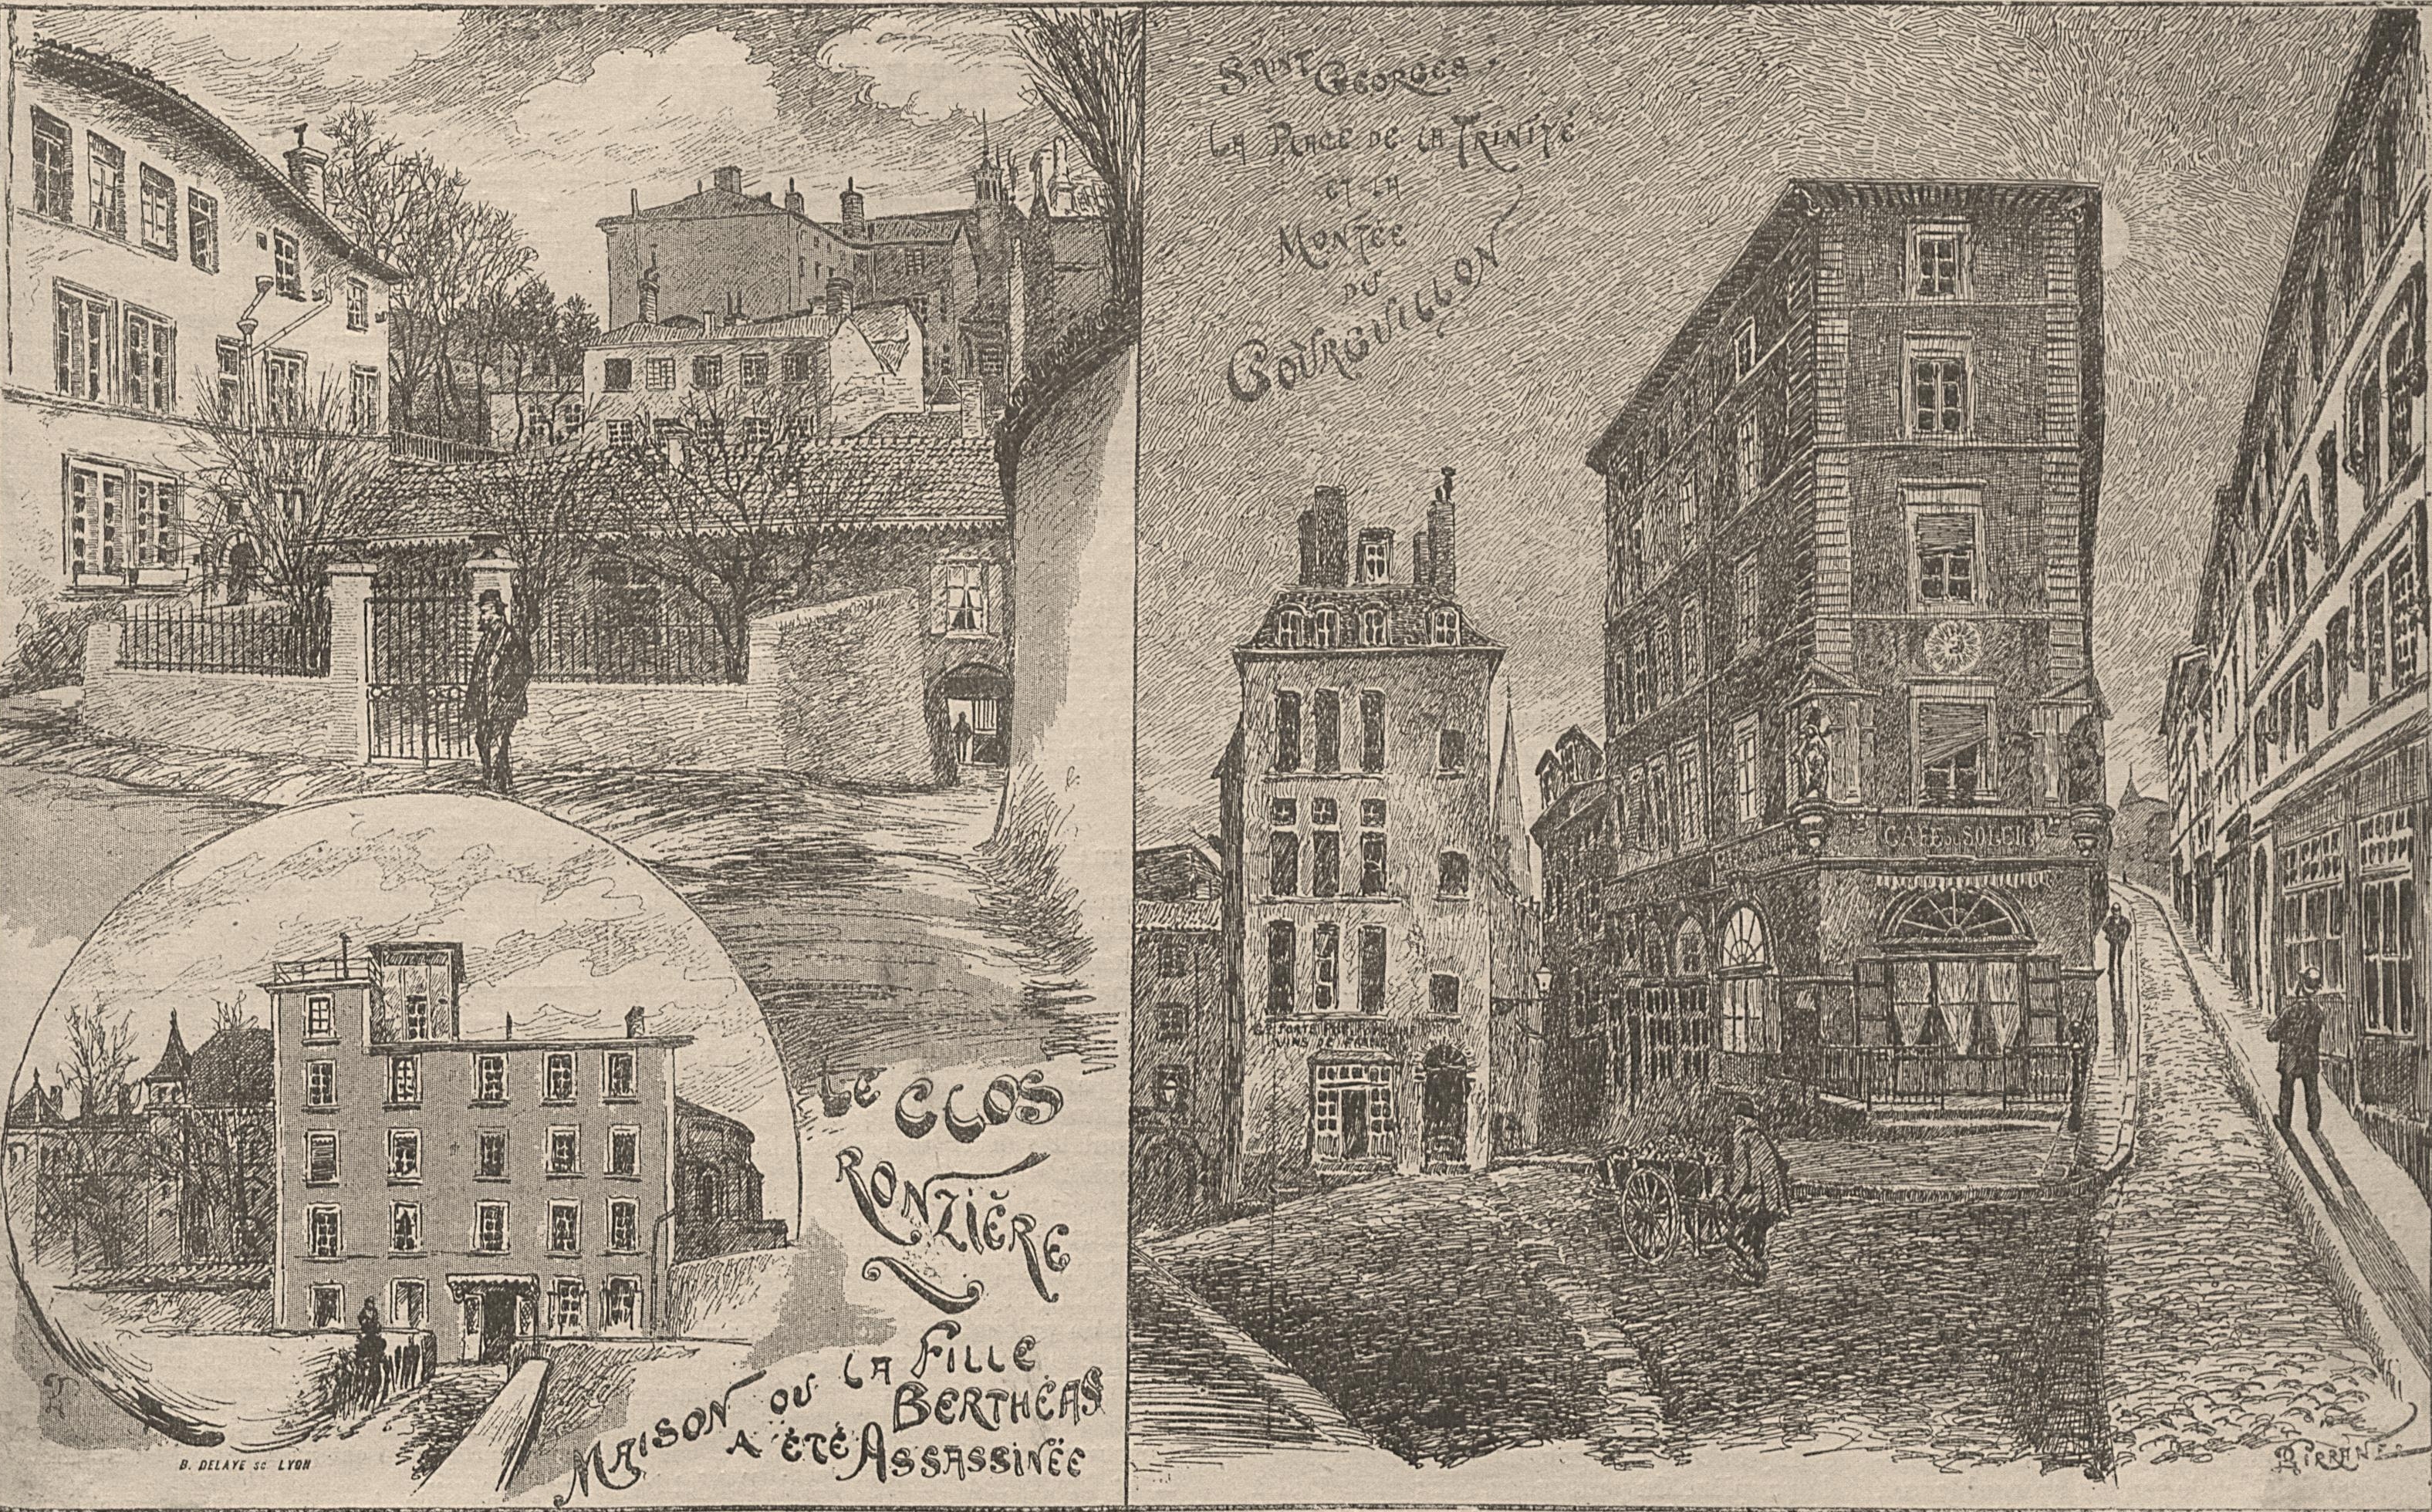 LE CLOS
RONZIÈRE
MAISON OU LA FILLE
BERTHÉAS
A ÉTÉ ASSASSINÉE
B. DELAYE SC LYON
SAINT GEORGES.
LA PLACE DE LA TRINITÉ
ET LA
MONTÉE
DU
GOURGUILLON
CAFÉ DU SOLEIL
VINS DE
GIRRANE